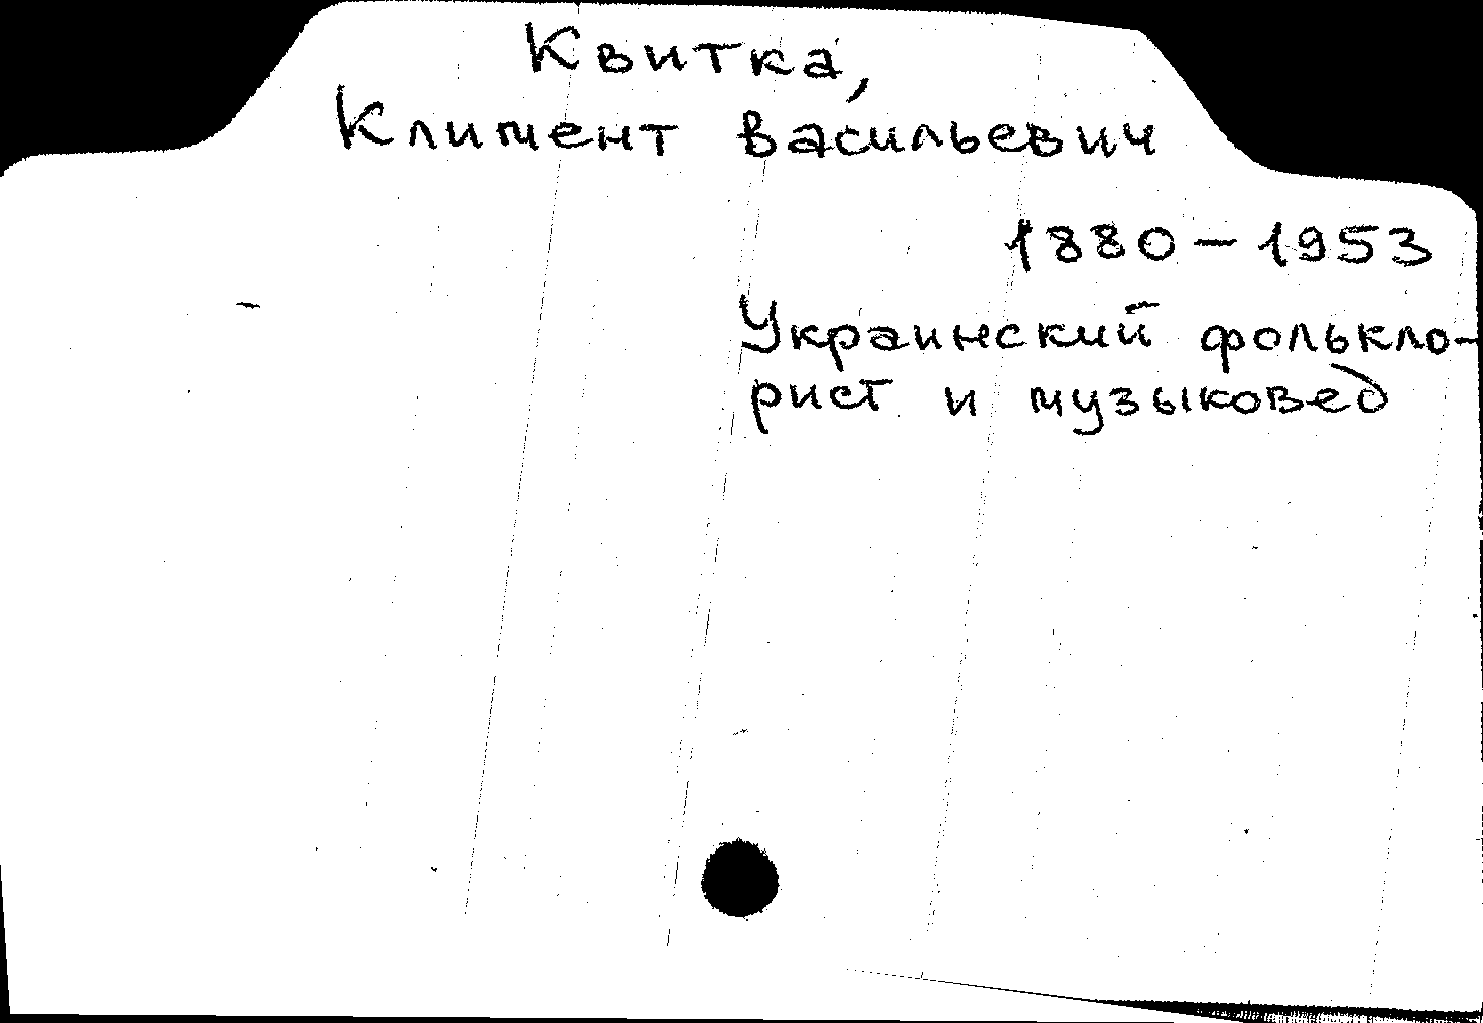 Квитка,
Климент Васильевич
1880 – 1953
Украинский фолькло-
рист и музыковед